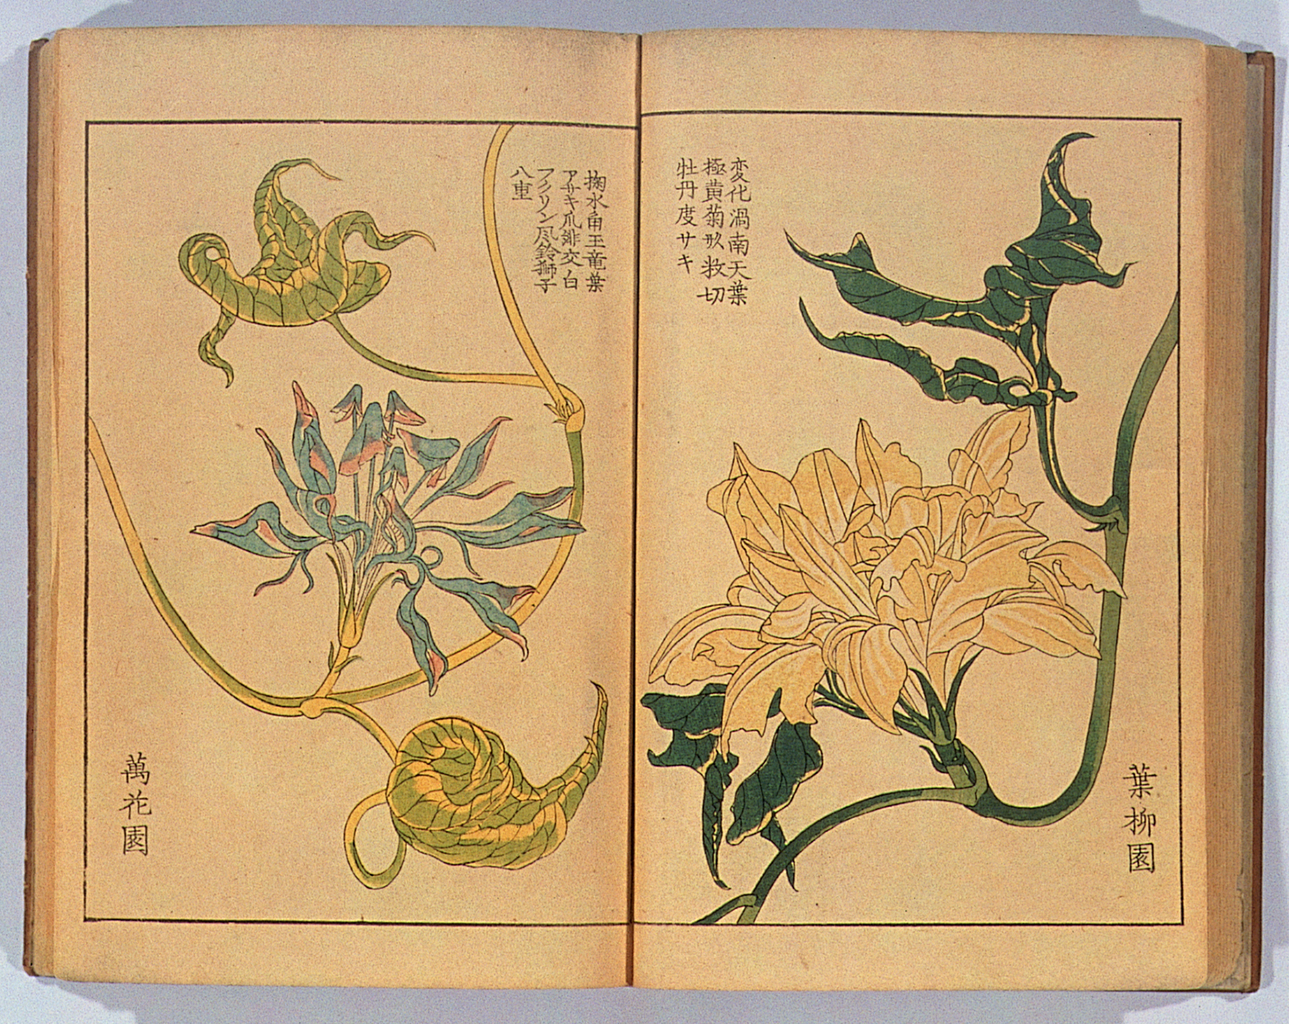 変化渦南天葉
極黄菊形救切
牡丹度サキ
葉柳園
掬水甬玉竜葉
アサキ爪緋交白
フクリン風鈴獅子
八重
萬花園